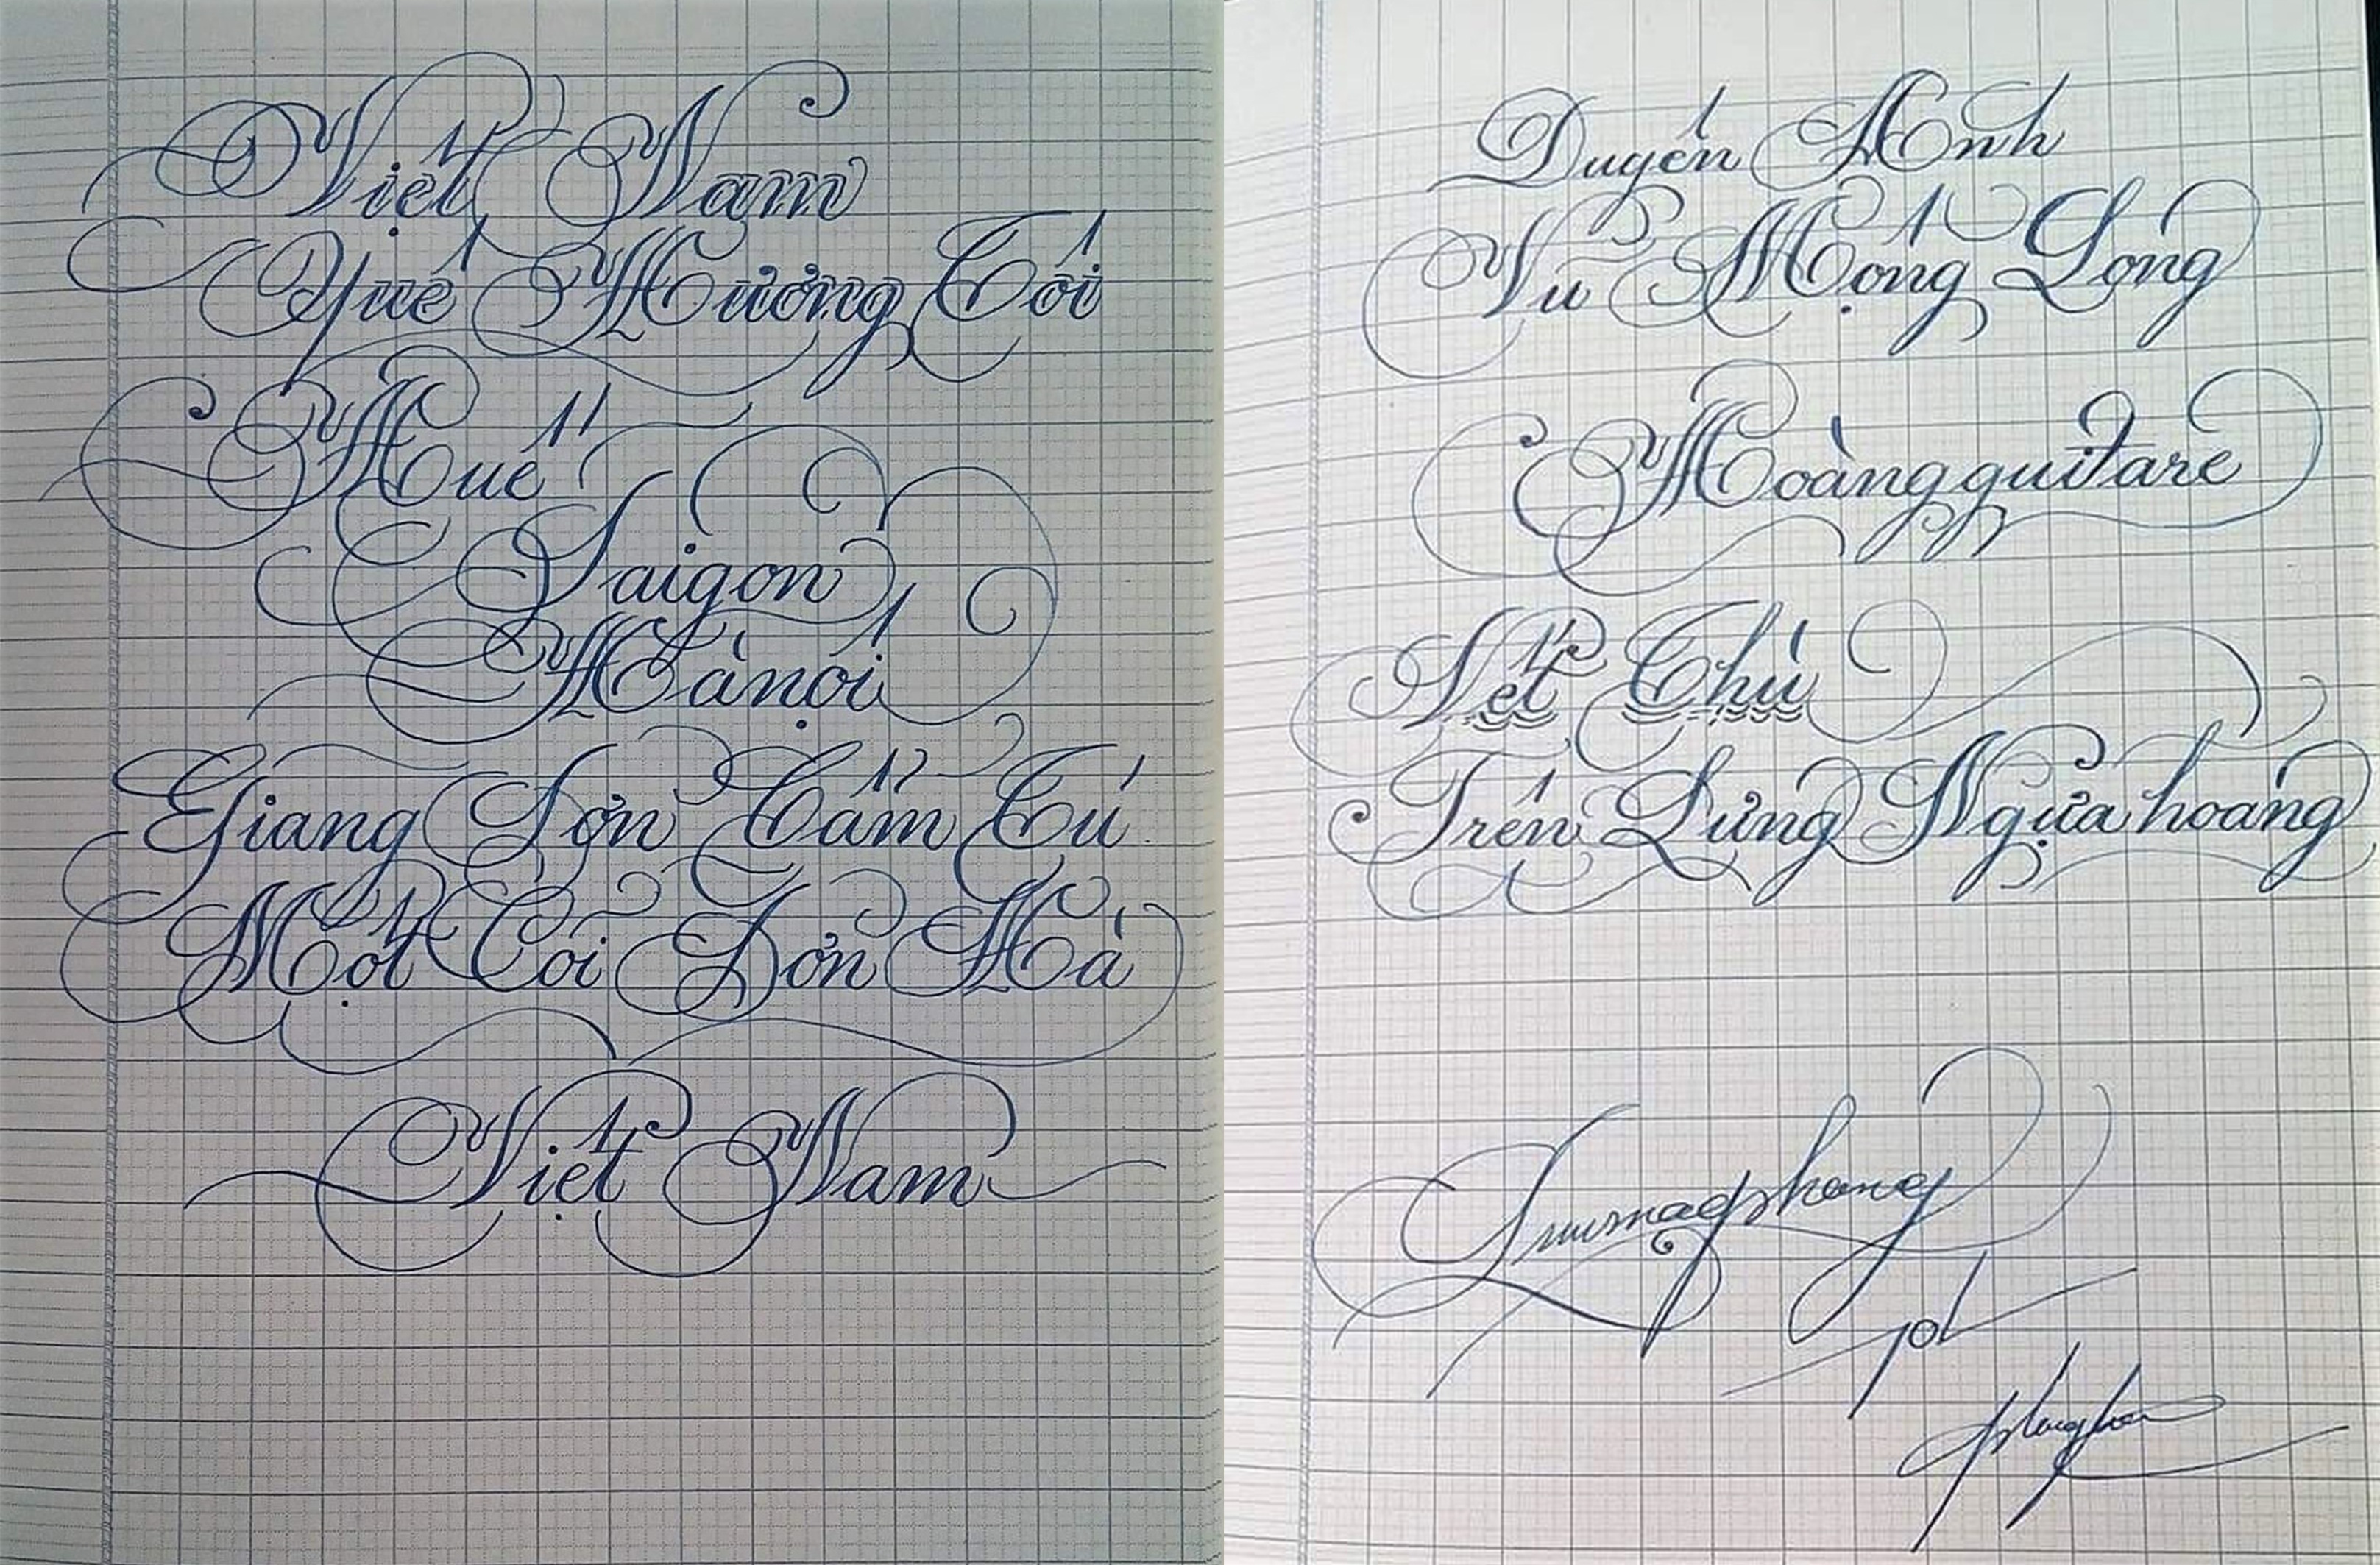 Việt Nam
Quê Hương Tôi
Huế
Saigon
Hànội
Giang Sơn Cẩm Tú
Một Cõi Sơn Hà
Việt Nam
Duyên Anh
Vũ Mộng Long
Hoàng guitare
Vết Thù
Trên Lưng Ngựa hoang